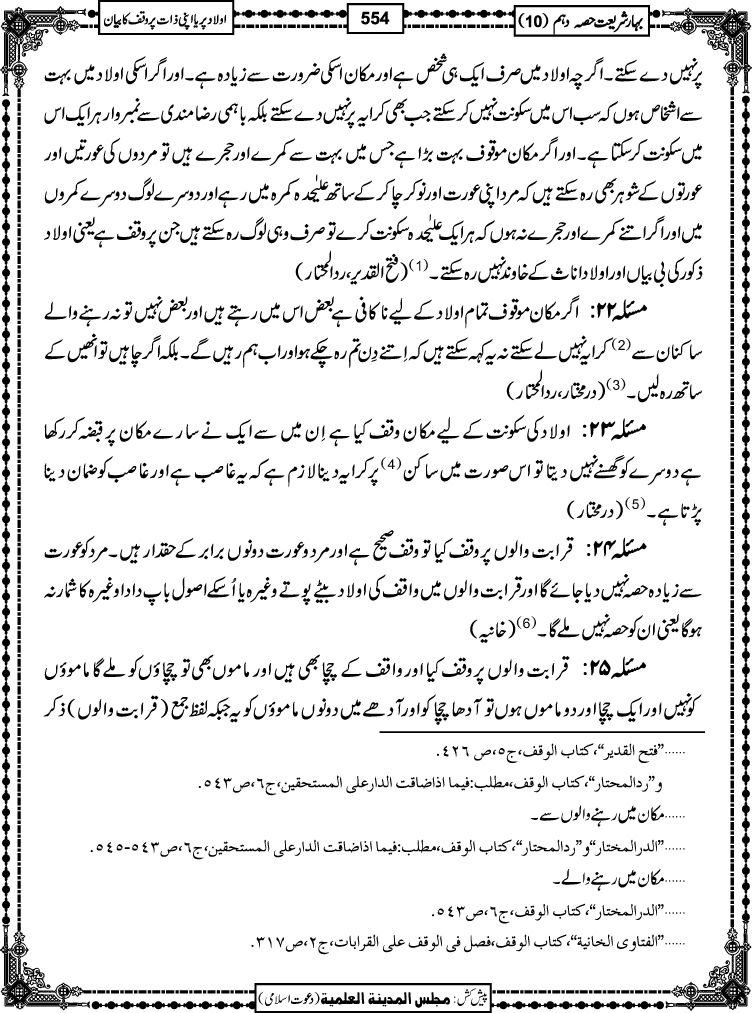 بہارِ شریعت حصہ دہم (10)
554
اولاد پر یا اپنی ذات پر وقف کا بیان
پر نہیں دے سکتے۔ اگرچہ اولاد میں صرف ایک ہی شخص ہے اور مکان اسکی ضرورت سے زیادہ ہے۔ اور اگر اسکی اولاد میں بہت
سے اشخاص ہوں کہ سب اس میں سکونت نہیں کر سکتے جب بھی کرایہ پر نہیں دے سکتے بلکہ باہمی رضا مندی سے نمبروار ہر ایک اس
میں سکونت کر سکتا ہے۔ اور اگر مکان موقوف بہت بڑا ہے جس میں بہت سے کمرے اور حجرے ہیں تو مردوں کی عورتیں اور
عورتوں کے شوہر بھی رہ سکتے ہیں کہ مرد اپنی عورت اور نوکر چاکر کے ساتھ علیٰحدہ کمرہ میں رہے اور دوسرے لوگ دوسرے کمروں
میں اور اگر اتنے کمرے اور حجرے نہ ہوں کہ ہر ایک علیٰحدہ سکونت کرے تو صرف وہی لوگ رہ سکتے ہیں جن پر وقف ہے یعنی اولاد
ذکور کی بی بیاں اور اولاد اناث کے خاوند نہیں رہ سکتے۔(1) (فتح القدیر، ردالمحتار)
مسئلہ ۲۲: اگر مکان موقوف تمام اولاد کے لیے ناکافی ہے بعض اس میں رہتے ہیں اور بعض نہیں تو نہ رہنے والے
ساکنان سے(2) کرایہ نہیں لے سکتے نہ یہ کہہ سکتے ہیں کہ اِتنے دِن تم رہ چکے ہو اور اب ہم رہیں گے۔ بلکہ اگر چاہیں تو انھیں کے
ساتھ رہ لیں۔(3) (درمختار، ردالمحتار)
مسئلہ ۲۳: اولاد کی سکونت کے لیے مکان وقف کیا ہے اِن میں سے ایک نے سارے مکان پر قبضہ کر رکھا
ہے دوسرے کو گھسنے نہیں دیتا تو اس صورت میں ساکن(4) پر کرایہ دینا لازم ہے کہ یہ غاصب ہے اور غاصب کو ضمان دینا
پڑتا ہے۔(5) (درمختار)
مسئلہ ۲۴: قرابت والوں پر وقف کیا تو وقف صحیح ہے اور مرد و عورت دونوں برابر کے حقدار ہیں۔ مرد کو عورت
سے زیادہ حصہ نہیں دیا جائے گا اور قرابت والوں میں واقف کی اولاد بیٹے پوتے وغیرہ یا اُسکے اصول باپ دادا وغیرہ کا شمار نہ
ہوگا یعنی ان کو حصہ نہیں ملے گا۔(6) (خانیہ)
مسئلہ ۲۵: قرابت والوں پر وقف کیا اور واقف کے چچا بھی ہیں اور ماموں بھی تو چچاؤں کو ملے گا ماموؤں
کو نہیں اور ایک چچا اور دو ماموں ہوں تو آدھا چچا کو اور آدھے میں دونوں ماموؤں کو یہ جبکہ لفظ جمع (قرابت والوں) ذکر
......”فتح القدير“، كتاب الوقف، ج٥، ص ٤٢٦.
و”ردالمحتار“، كتاب الوقف، مطلب: فيما اذاضاقت الدارعلى المستحقين، ج٦، ص٥٤٣.
......مکان میں رہنے والوں سے۔
......”الدرالمختار“و”ردالمحتار“، كتاب الوقف، مطلب: فيما اذاضاقت الدارعلى المستحقين، ج٦، ص٥٤٣-٥٤٥.
......مکان میں رہنے والے۔
......”الدرالمختار“، كتاب الوقف، ج٦، ص٥٤٣.
......”الفتاوى الخانية“، كتاب الوقف، فصل فى الوقف على القرابات، ج٢، ص٣١٧.
پیش کش: مجلس المدينة العلمية (دعوت اسلامی)